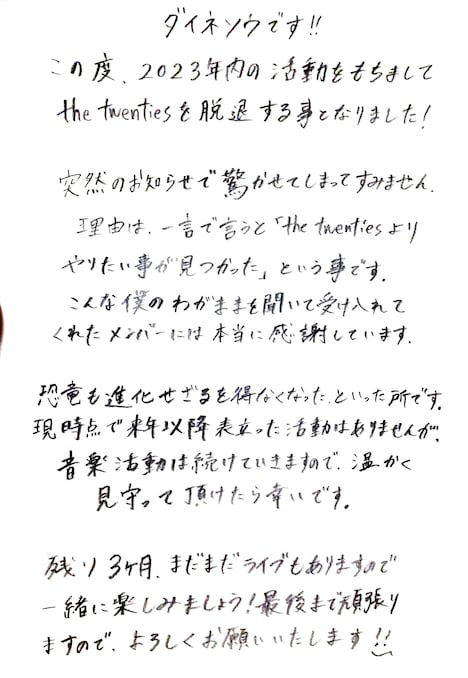 ダイネソウです!!
この度、2023年内の活動をもちまして
the twentiesを脱退する事となりました!
突然のお知らせで驚かせてしまってすみません.
理由は、一言で言うと「the twentiesより
やりたい事が見つかった」という事です.
こんな僕のわがままを聞いて受け入れて
くれたメンバーには本当に感謝しています.
恐竜も進化せざるを得なくなった、といった所です.
現時点で来年以降表立った活動はありませんが、
音楽活動は続けていきますので、温かく
見守って頂けたら幸いです.
残り3ヶ月、まだまだライブもありますので
一緒に楽しみましょう!最後まで頑張り
ますので、よろしくお願いいたします!!